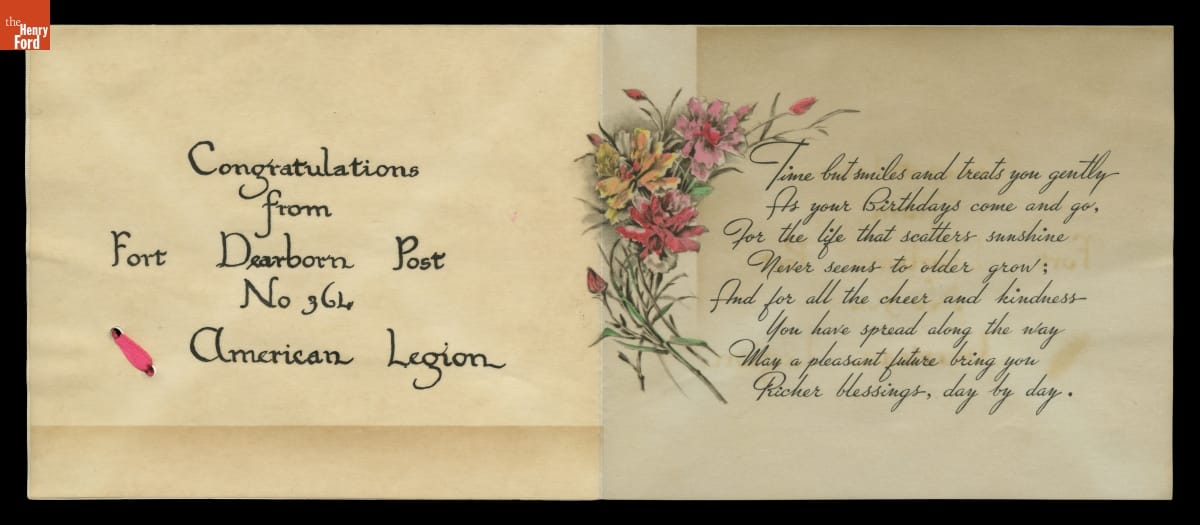 the
Henry
Ford
Congratulations
from
Fort Dearborn Post
No 364
American Legion
Time but smiles and treats you gently
As your Birthdays come and go,
For the life that scatters sunshine
Never seems to older grow;
And for all the cheer and kindness
You have spread along the way
May a pleasant future bring you
Richer blessings, day by day.